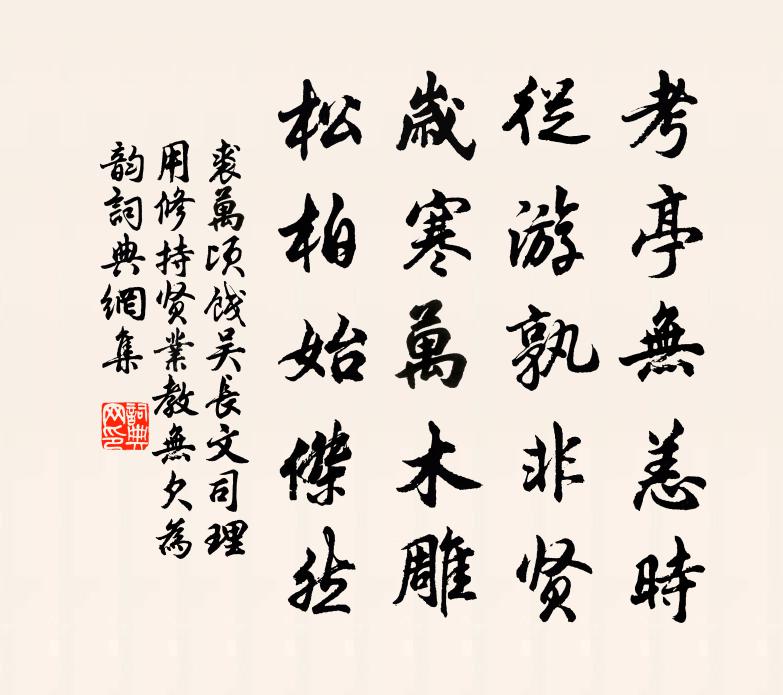 考亭無恙時
從游孰非贤
歲寒萬木雕
松柏始傑然
裘萬頃餞吴長文司理
用修持贤業教無欠為
韵詞典網集
詞典网印